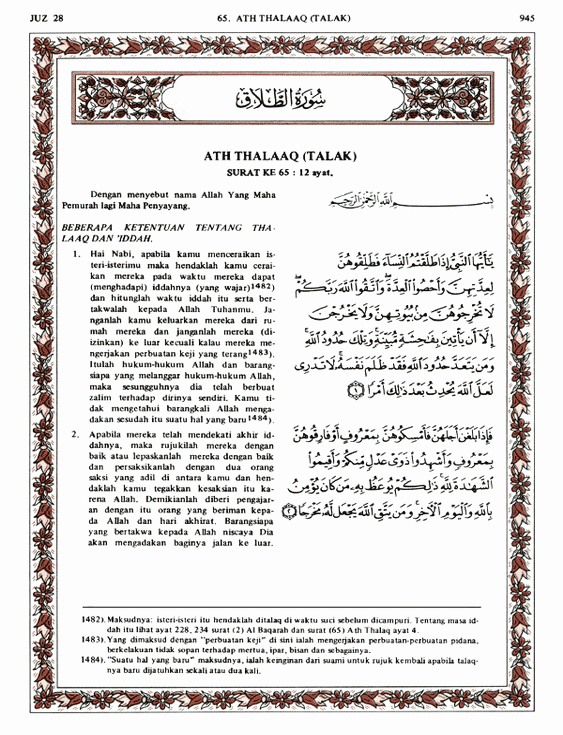 JUZ 28 65. ATH THALAAQ (TALAK) 945
سُورَةُ الطَّلَاقِ
ATH THALAAQ (TALAK)
SURAT KE 65 : 12 ayat.
Dengan menyebut nama Allah Yang Maha
Pemurah lagi Maha Penyayang.
BEBERAPA KETENTUAN TENTANG THA-
LAAQ DAN 'IDDAH.
1. Hai Nabi, apabila kamu menceraikan is-
teri-isterimu maka hendaklah kamu cerai-
kan mereka pada waktu mereka dapat
(menghadapi) iddahnya (yang wajar)1482)
dan hitunglah waktu iddah itu serta ber-
takwalah kepada Allah Tuhanmu. Ja-
nganlah kamu keluarkan mereka dari ru-
mah mereka dan janganlah mereka (di-
izinkan) ke luar kecuali kalau mereka me-
ngerjakan perbuatan keji yang terang1483).
Itulah hukum-hukum Allah dan barang-
siapa yang melanggar hukum-hukum Allah,
maka sesungguhnya dia telah berbuat
zalim terhadap dirinya sendiri. Kamu ti-
dak mengetahui barangkali Allah menga-
dakan sesudah itu suatu hal yang baru1484).
2. Apabila mereka telah mendekati akhir id-
dahnya, maka rujukilah mereka dengan
baik atau lepaskanlah mereka dengan baik
dan persaksikanlah dengan dua orang
saksi yang adil di antara kamu dan hen-
daklah kamu tegakkan kesaksian itu ka-
rena Allah. Demikianlah diberi pengajar-
an dengan itu orang yang beriman kepa-
da Allah dan hari akhirat. Barangsiapa
yang bertakwa kepada Allah niscaya Dia
akan mengadakan baginya jalan ke luar.
بِسْمِ اللَّهِ الرَّحْمَٰنِ الرَّحِيمِ
يَٰٓأَيُّهَا ٱلنَّبِيُّ إِذَا طَلَّقْتُمُ ٱلنِّسَآءَ فَطَلِّقُوهُنَّ
لِعِدَّتِهِنَّ وَأَحْصُوا۟ ٱلْعِدَّةَ وَٱتَّقُوا۟ ٱللَّهَ رَبَّكُمْ
لَا تُخْرِجُوهُنَّ مِنۢ بُيُوتِهِنَّ وَلَا يَخْرُجْنَ
إِلَّآ أَن يَأْتِينَ بِفَٰحِشَةٍ مُّبَيِّنَةٍ وَتِلْكَ حُدُودُ ٱللَّهِ
وَمَن يَتَعَدَّ حُدُودَ ٱللَّهِ فَقَدْ ظَلَمَ نَفْسَهُۥ لَا تَدْرِى
لَعَلَّ ٱللَّهَ يُحْدِثُ بَعْدَ ذَٰلِكَ أَمْرًا ١
فَإِذَا بَلَغْنَ أَجَلَهُنَّ فَأَمْسِكُوهُنَّ بِمَعْرُوفٍ أَوْ فَارِقُوهُنَّ
بِمَعْرُوفٍ وَأَشْهِدُوا۟ ذَوَىْ عَدْلٍ مِّنكُمْ وَأَقِيمُوا۟
ٱلشَّهَٰدَةَ لِلَّهِ ذَٰلِكُمْ يُوعَظُ بِهِۦ مَن كَانَ يُؤْمِنُ
بِٱللَّهِ وَٱلْيَوْمِ ٱلْءَاخِرِ وَمَن يَتَّقِ ٱللَّهَ يَجْعَل لَّهُۥ مَخْرَجًا ٢
1482). Maksudnya: isteri-isteri itu hendaklah ditalaq di waktu suci sebelum dicampuri. Tentang masa id-
dah itu lihat ayat 228, 234 surat (2) Al Baqarah dan surat (65) Ath Thalaq ayat 4.
1483). Yang dimaksud dengan "perbuatan keji" di sini ialah mengerjakan perbuatan-perbuatan pidana,
berkelakuan tidak sopan terhadap mertua, ipar, bisan dan sebagainya.
1484). "Suatu hal yang baru" maksudnya, ialah keinginan dari suami untuk rujuk kembali apabila talaq-
nya baru dijatuhkan sekali atau dua kali.